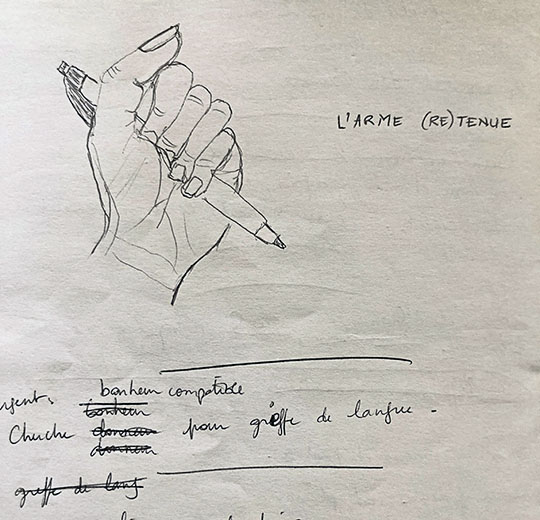 L'ARME (RE)TENUE
urgent. bonheur compatible
bonheur
Cherche donneur pour greffe de langue.
donneur
greffe de lang